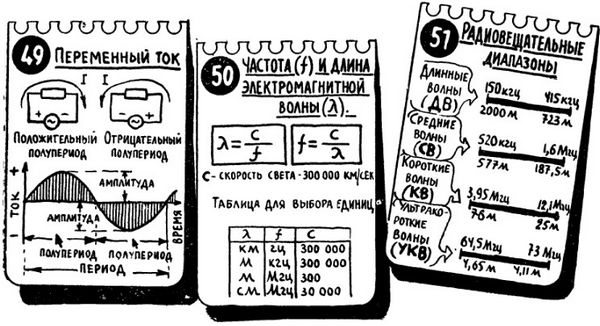 49 ПЕРЕМЕННЫЙ ТОК
I I
- + + -
ПОЛОЖИТЕЛЬНЫЙ
ПОЛУПЕРИОД
ОТРИЦАТЕЛЬНЫЙ
ПОЛУПЕРИОД
- ТОК +
АМПЛИТУДА
АМПЛИТУДА
ВРЕМЯ
ПОЛУПЕРИОД ПОЛУПЕРИОД
ПЕРИОД
50 ЧАСТОТА (f) И ДЛИНА
ЭЛЕКТРОМАГНИТНОЙ
ВОЛНЫ (λ).
λ = C/f f = C/λ
C - СКОРОСТЬ СВЕТА - 300 000 КМ/СЕК
ТАБЛИЦА ДЛЯ ВЫБОРА ЕДИНИЦ
λ f C
КМ ГЦ 300 000
М КГЦ 300 000
М МГЦ 300
СМ МГЦ 30 000
51 РАДИОВЕЩАТЕЛЬНЫЕ
ДИАПАЗОНЫ
ДЛИННЫЕ
ВОЛНЫ
(ДВ)
150 КГЦ 415 КГЦ
2000 М 723 М
СРЕДНИЕ
ВОЛНЫ
(СВ)
520 КГЦ 1,6 МГЦ
577 М 187,5 М
КОРОТКИЕ
ВОЛНЫ
(КВ)
3,95 МГЦ 12,1 МГЦ
76 М 25 М
УЛЬТРАКО-
РОТКИЕ
ВОЛНЫ
(УКВ)
64,5 МГЦ 73 МГЦ
4,65 М 4,11 М